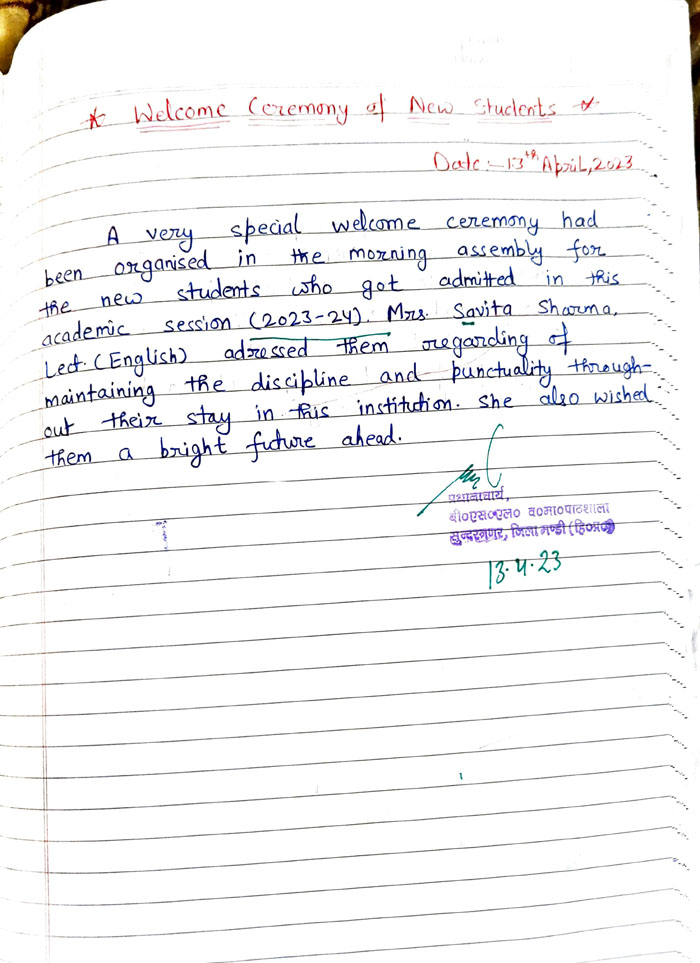 * Welcome Ceremony of New Students *
Date:- 13th April, 2023
A very special welcome ceremony had
been organised in the morning assembly for
the new students who got admitted in this
academic session (2023-24). Mrs. Savita Sharma,
Lect. (English) adressed them regarding of
maintaining the discipline and punctuality through-
out their stay in this institution. She also wished
them a bright future ahead.
प्रधानाचार्य,
बी०एस०एल० व०मा०पाठशाला
सुन्दरनगर, जिला मण्डी (हि०प्र०)
13.4.23